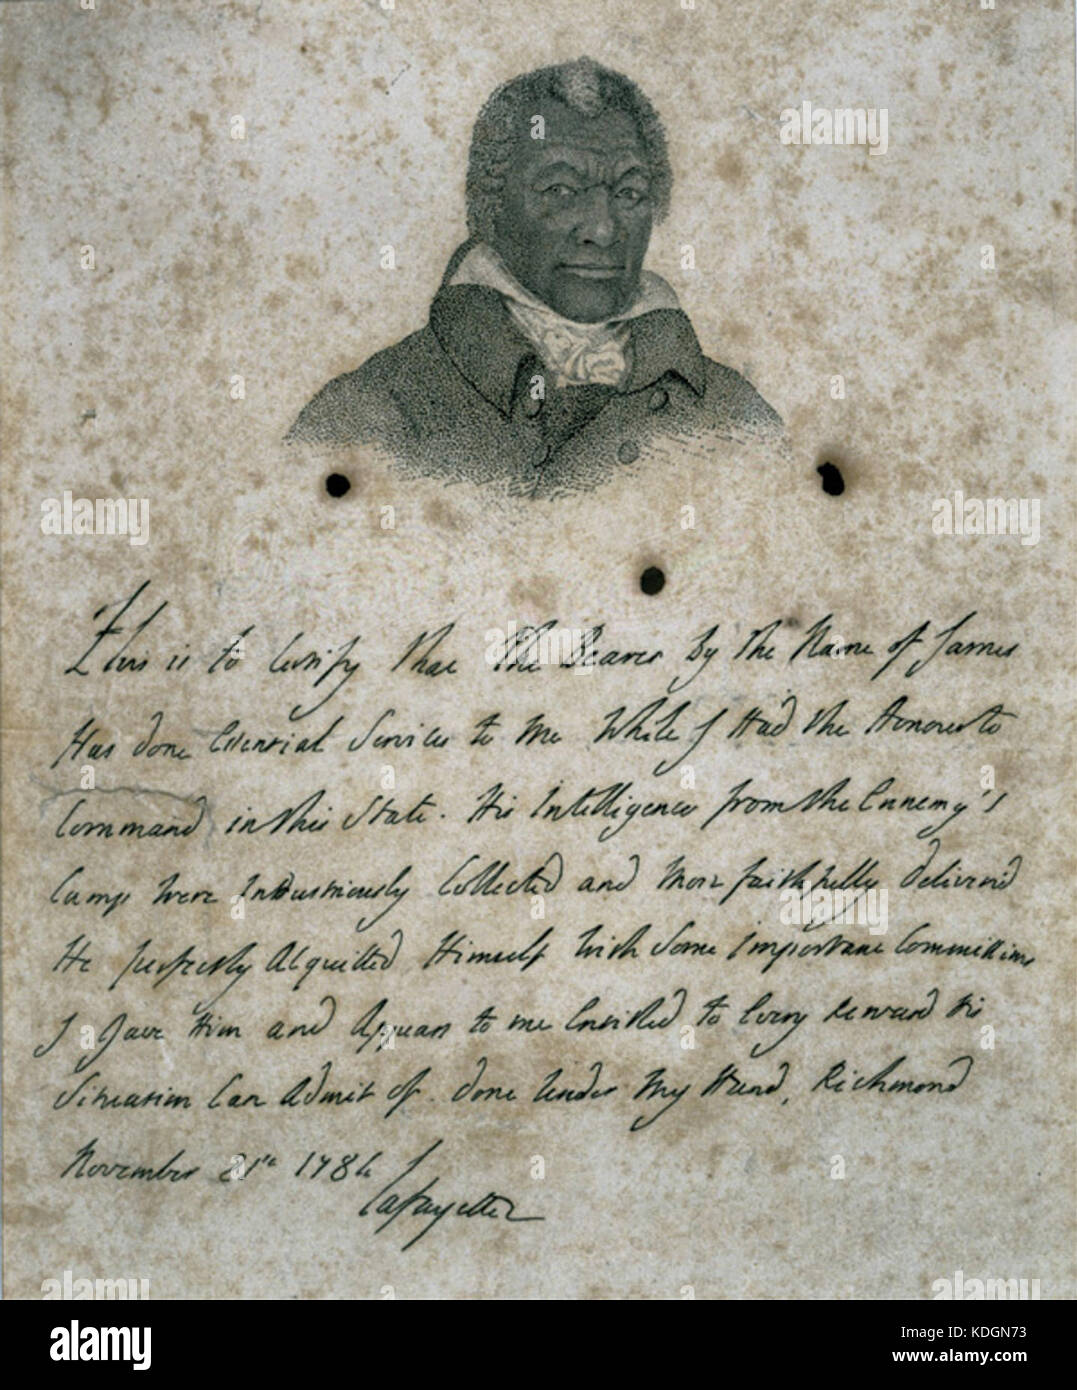 This is to Certify that the Bearer By the Name of James
Has done Essential Services to me While I Had the Honour to
Command in this State. His Intelligences from the Ennemy's
Camp were Industriously Collected and More faithfully deliver'd
He perfectly Acquitted Himself with Some Important Commissions
I Gave Him and Appears to me Entitled to Every Reward his
Situation Can Admit of. done Under my Hand, Richmond
November 21st 1784
Lafayette
a
alamy
alamy stock photo
KDGN73
www.alamy.com